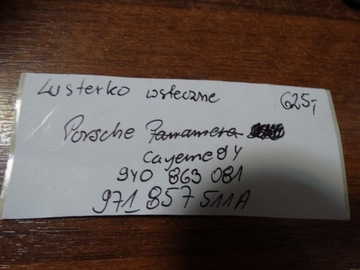 Lusterko wsteczne 625,-
Porsche Panamera
Cayenne 9Y
9Y0 863 081
971_857511A